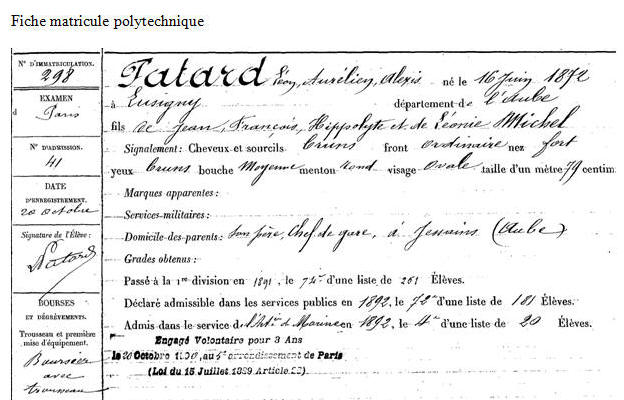 Fiche matricule polytechnique
N° D'IMMATRICULATION.
298
EXAMEN
d Paris
N° D'ADMISSION.
41
DATE
D'ENREGISTREMENT.
20 octobre
Signature de l'Élève :
Patard
BOURSES
ET DÉGRÈVEMENTS.
Trousseau et première
mise d'équipement.
Boursier
avec
trousseau
Patard Léon, Aurélien, Alexis né le 16 Juin 1872
à Lusigny département de l'Aube
fils de Jean, François, Hippolyte et de Léonie Michel
Signalement : Cheveux et sourcils bruns front ordinaire nez fort
yeux bruns bouche Moyenne menton rond visage Ovale taille d'un mètre 79 centim.
Marques apparentes :
Services militaires :
Domicile des parents : son père, Chef de gare, à Jessains (Aube)
Grades obtenus :
Passé à la 1re division en 1891, le 74e d'une liste de 261 Élèves.
Déclaré admissible dans les services publics en 1892, le 72e d'une liste de 181 Élèves.
Admis dans le service de l'Artie de Marine en 1892, le 4e d'une liste de 20 Élèves.
Engagé Volontaire pour 3 Ans
le 20 Octobre 1890, au 5e arrondissement de Paris
(Loi du 15 Juillet 1889 Article 23)